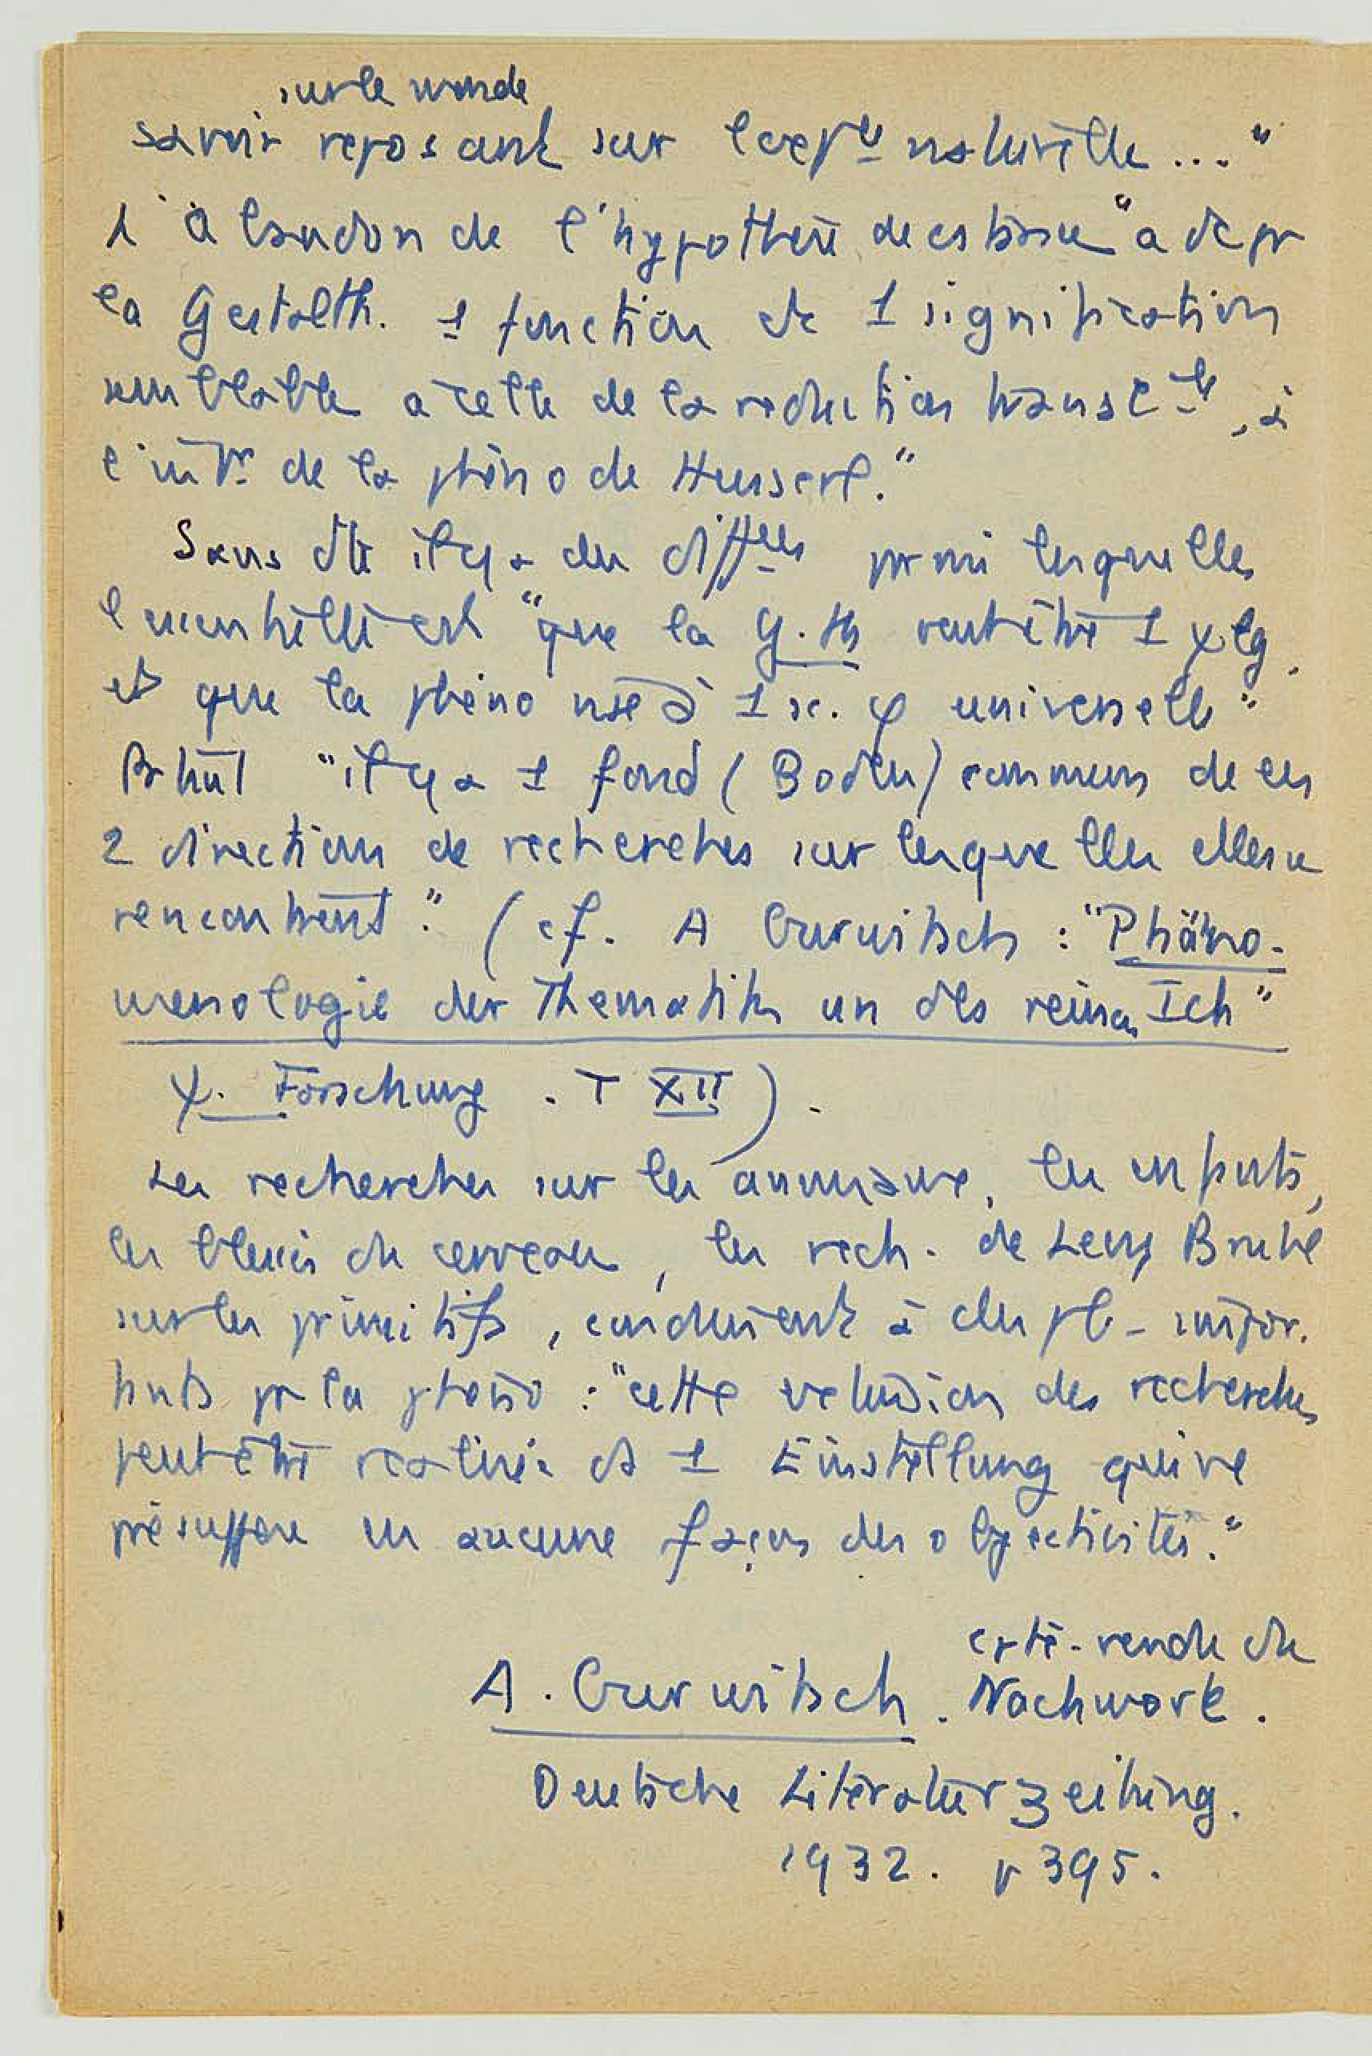 sur le monde
savoir reposant sur l'expce naturelle ... "
L'abandon de l'hypothèse de cstance "a dc pr
la Gestalth. 1 fonction et 1 signification
semblable à celle de la réduction transcle, à
l'intr de la phéno de Husserl."
Sans dte il y a des diffces parmi lesquelles
l'essentielle est "que la G.th veut être 1 ψlg.
et que la phéno vise à 1 sc. φ universelle"
"il y a 1 fond (Boden) commun de ces
2 directions de recherches sur lesquelles elles se
rencontrent." (cf. A Gurwitsch : "Phäno-
menologie der Thematik un des reinen Ich"
ψ. Forschung . T XII) .
Les recherches sur les animaux, les enfants,
les blessés du cerveau, les rech. de Levy Bruhl
sur les primitifs, conduisent à des pb - impor.
tants pr la phéno : "cette des recherches
peut être réalisée ds 1 Einstellung qui ne
présuppose en aucune façon des objectivités."
cpte-rendu du
A. Gurwitsch . Nachwort .
Deutsche Literaturzeitung.
1932. p 395.